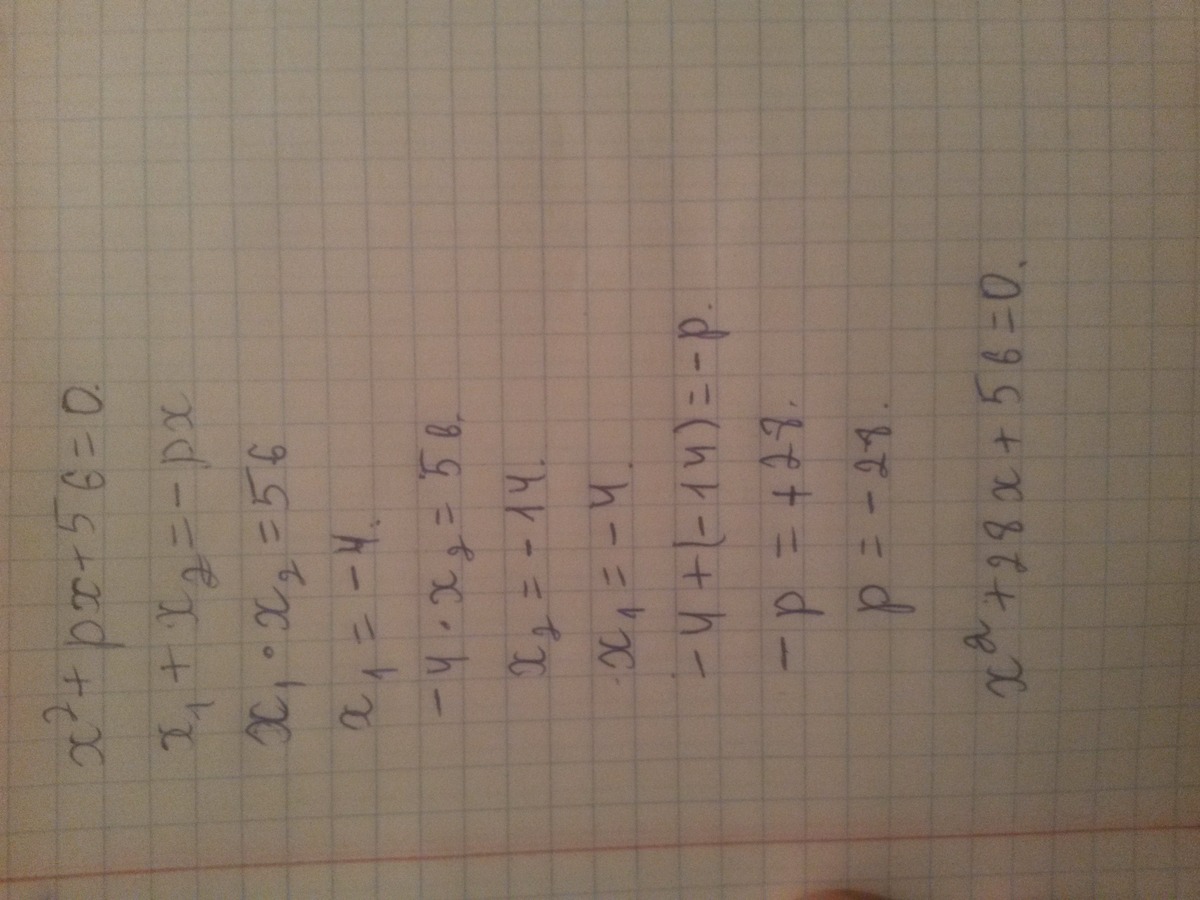 x²+px+56=0.
x₁+x₂=-px
x₁·x₂=56
x₁=-4.
-4·x₂=56.
x₂=-14.
x₁=-4.
-4+(-14)=-p.
-p=+28.
p=-28.
x²+28x+56=0.